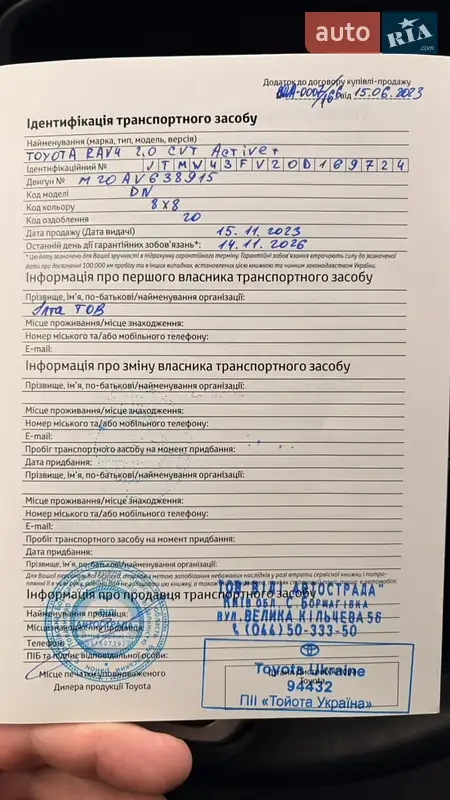 auto RIA.com
Додаток до договору купівлі-продажу
від 15.06.2023
Ідентифікація транспортного засобу
Найменування (марка, тип, модель, версія)
TOYOTA RAV4 2.0 CVT Active+
Ідентифікаційний № JTMW43FV20D169724
Двигун № M20AV638915
Код моделі DN
Код кольору 8X8
Код оздоблення 20
Дата продажу (Дата видачі) 15.11.2023
Останній день дії гарантійних зобов'язань*: 14.11.2026
*Цю дату зазначено для Вашої зручності в підрахунку гарантійного терміну. Гарантійні зобов'язання втрачають силу до зазначеної
дати при досягненні 100 000 км пробігу та в інших випадках, встановлених цією книжкою та чинним законодавством України.
Інформація про першого власника транспортного засобу
Прізвище, ім'я, по-батькові/найменування організації:
Ялта ТОВ
Місце проживання/місце знаходження:
Номер міського та/або мобільного телефону:
E-mail:
Інформація про зміну власника транспортного засобу
Прізвище, ім'я, по-батькові/найменування організації:
Місце проживання/місце знаходження:
Номер міського та/або мобільного телефону:
E-mail:
Пробіг транспортного засобу на момент придбання:
Дата придбання:
Прізвище, ім'я, по-батькові/найменування організації:
Місце проживання/місце знаходження:
Номер міського та/або мобільного телефону:
E-mail:
Пробіг транспортного засобу на момент придбання:
Дата придбання:
Прізвище, ім'я, по-батькові/найменування організації:
Для Вашої персональної безпеки, а також з метою запобігання небажаних наслідків у разі втрати сервісної книжки і
Інформація про продавця транспортного засобу
ТОВ "ВІДІ АВТОСТРАДА"
КИЇВ ОБЛ. С. БОРЩАГІВКА
Найменування продавця:
ВУЛ. ВЕЛИКА КІЛЬЦЕВА 56
Місце знаходження продавця:
(044) 50-333-50
Телефон
ПІБ та підпис відповідальної особи:
Місце печатки уповноваженого
Дилера продукції Toyota
ВІДІ
АВТОСТРАДА
Toyota Ukraine
94432
ПІІ «Тойота Україна»